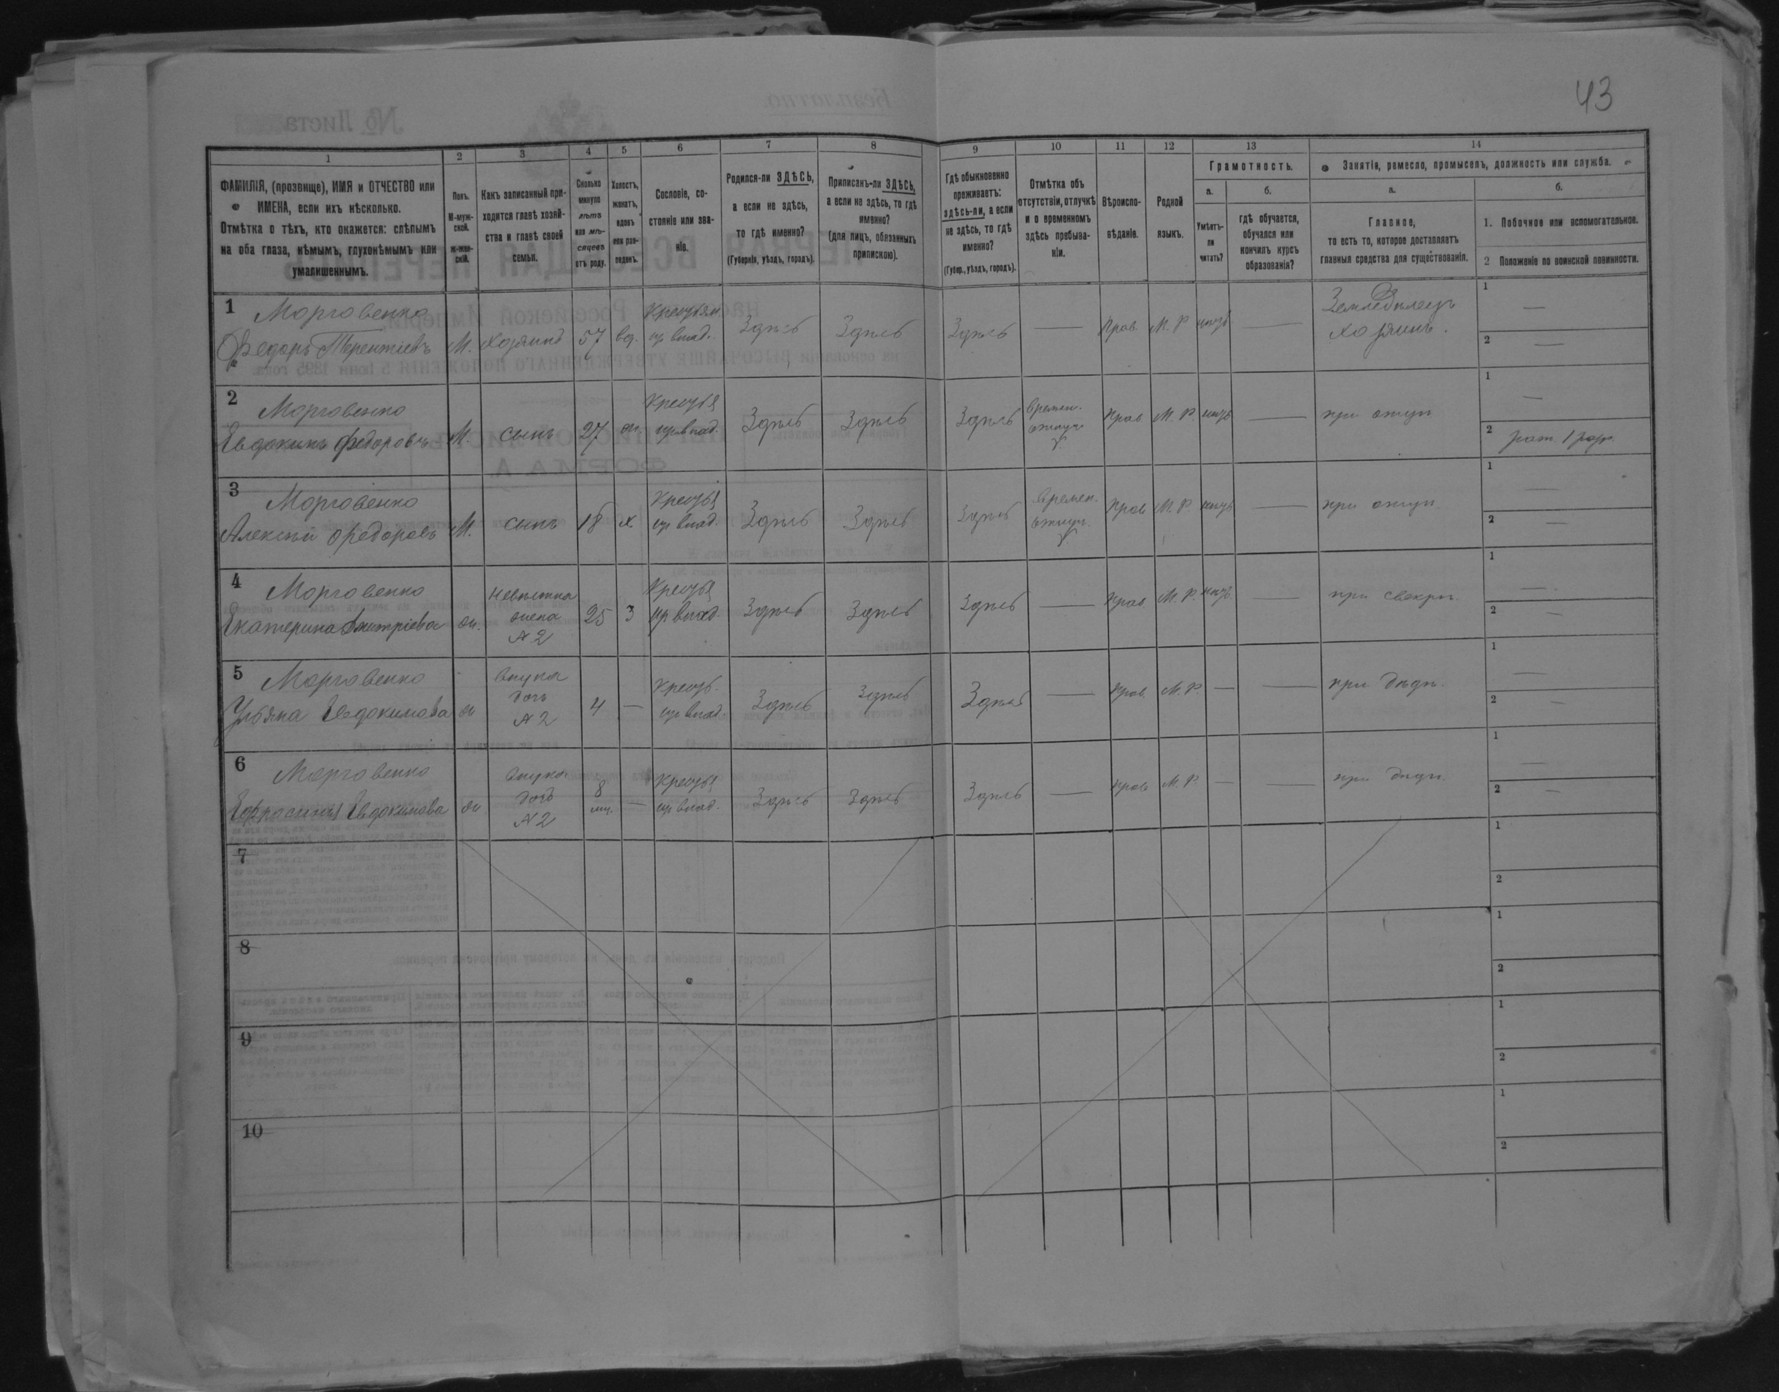 43
1
2
3
4
5
6
7
8
9
10
11
12
13
14
ФАМИЛІЯ, (прозвище), ИМЯ и ОТЧЕСТВО или
ИМЕНА, если ихъ нѣсколько.
Отмѣтка о тѣхъ, кто окажется: слѣпымъ
на оба глаза, нѣмымъ, глухонѣмымъ или
умалишеннымъ.
Полъ.
М-муж-
ской.
Ж-жен-
скій.
Какъ записанный при-
ходится главѣ хозяй-
ства и главѣ своей
семьи.
Сколько
минуло
лѣтъ
или мѣ-
сяцевъ
отъ роду.
Холостъ,
женатъ,
вдовъ
или раз-
веденъ.
Сословіе, со-
стояніе или зва-
ніе.
Родился-ли ЗДѢСЬ,
а если не здѣсь,
то гдѣ именно?
(Губернія, уѣздъ, городъ).
Приписанъ-ли ЗДѢСЬ,
а если не здѣсь, то гдѣ
именно?
(для лицъ, обязанныхъ
припискою).
Гдѣ обыкновенно
проживаетъ:
здѣсь-ли, а если
не здѣсь, то гдѣ
именно?
(Губер., уѣздъ, городъ).
Отмѣтка объ
отсутствіи, отлучкѣ
и о временномъ
здѣсь пребыва-
ніи.
Вѣроиспо-
вѣданіе.
Родной
языкъ.
Грамотность.
а.
Умѣетъ-
ли
читать?
б.
гдѣ обучается,
обучался или
кончилъ курсъ
образованія?
Занятія, ремесло, промыселъ, должность или служба.
а.
Главное,
то есть то, которое доставляетъ
главныя средства для существованія.
б.
1. Побочное или вспомогательное.
2 Положеніе по воинской повинности.
1 Морговенко
Федоръ Терентіевъ М. Хозяинъ 57 вд. Здѣсь Здѣсь Здѣсь — Прав. М. Р. — Земледѣлецъ
хозяинъ. 1 — 2 —
2 Морговенко
Евдокимъ Федоровъ М. сынъ 27 Здѣсь Здѣсь Здѣсь Времен. Прав М. Р. — при отцѣ 1 — 2
3 Морговенко
Алексѣй Федоровъ М. сынъ 18 х. Здѣсь Здѣсь Здѣсь Времен. Прав М. Р. — при отцѣ 1 — 2 —
4 Морговенко
Екатерина Дмитріева Невѣстка
жена
№ 2 25 З Здѣсь Здѣсь Здѣсь — Прав М. Р. — при свекрѣ 1 — 2 —
5 Морговенко
Ульяна Евдокимова Внучка
дочь
№ 2 4 — Здѣсь Здѣсь Здѣсь — Прав. М. Р. — — при дѣдѣ. 1 — 2 —
6 Морговенко
Ефросинья Евдокимова Внучка
дочь
№ 2 8
мц. — Здѣсь Здѣсь Здѣсь — Прав М. Р. — — при дѣдѣ 1 — 2 —
7 1 2
8 1 2
9 1 2
10 1 2